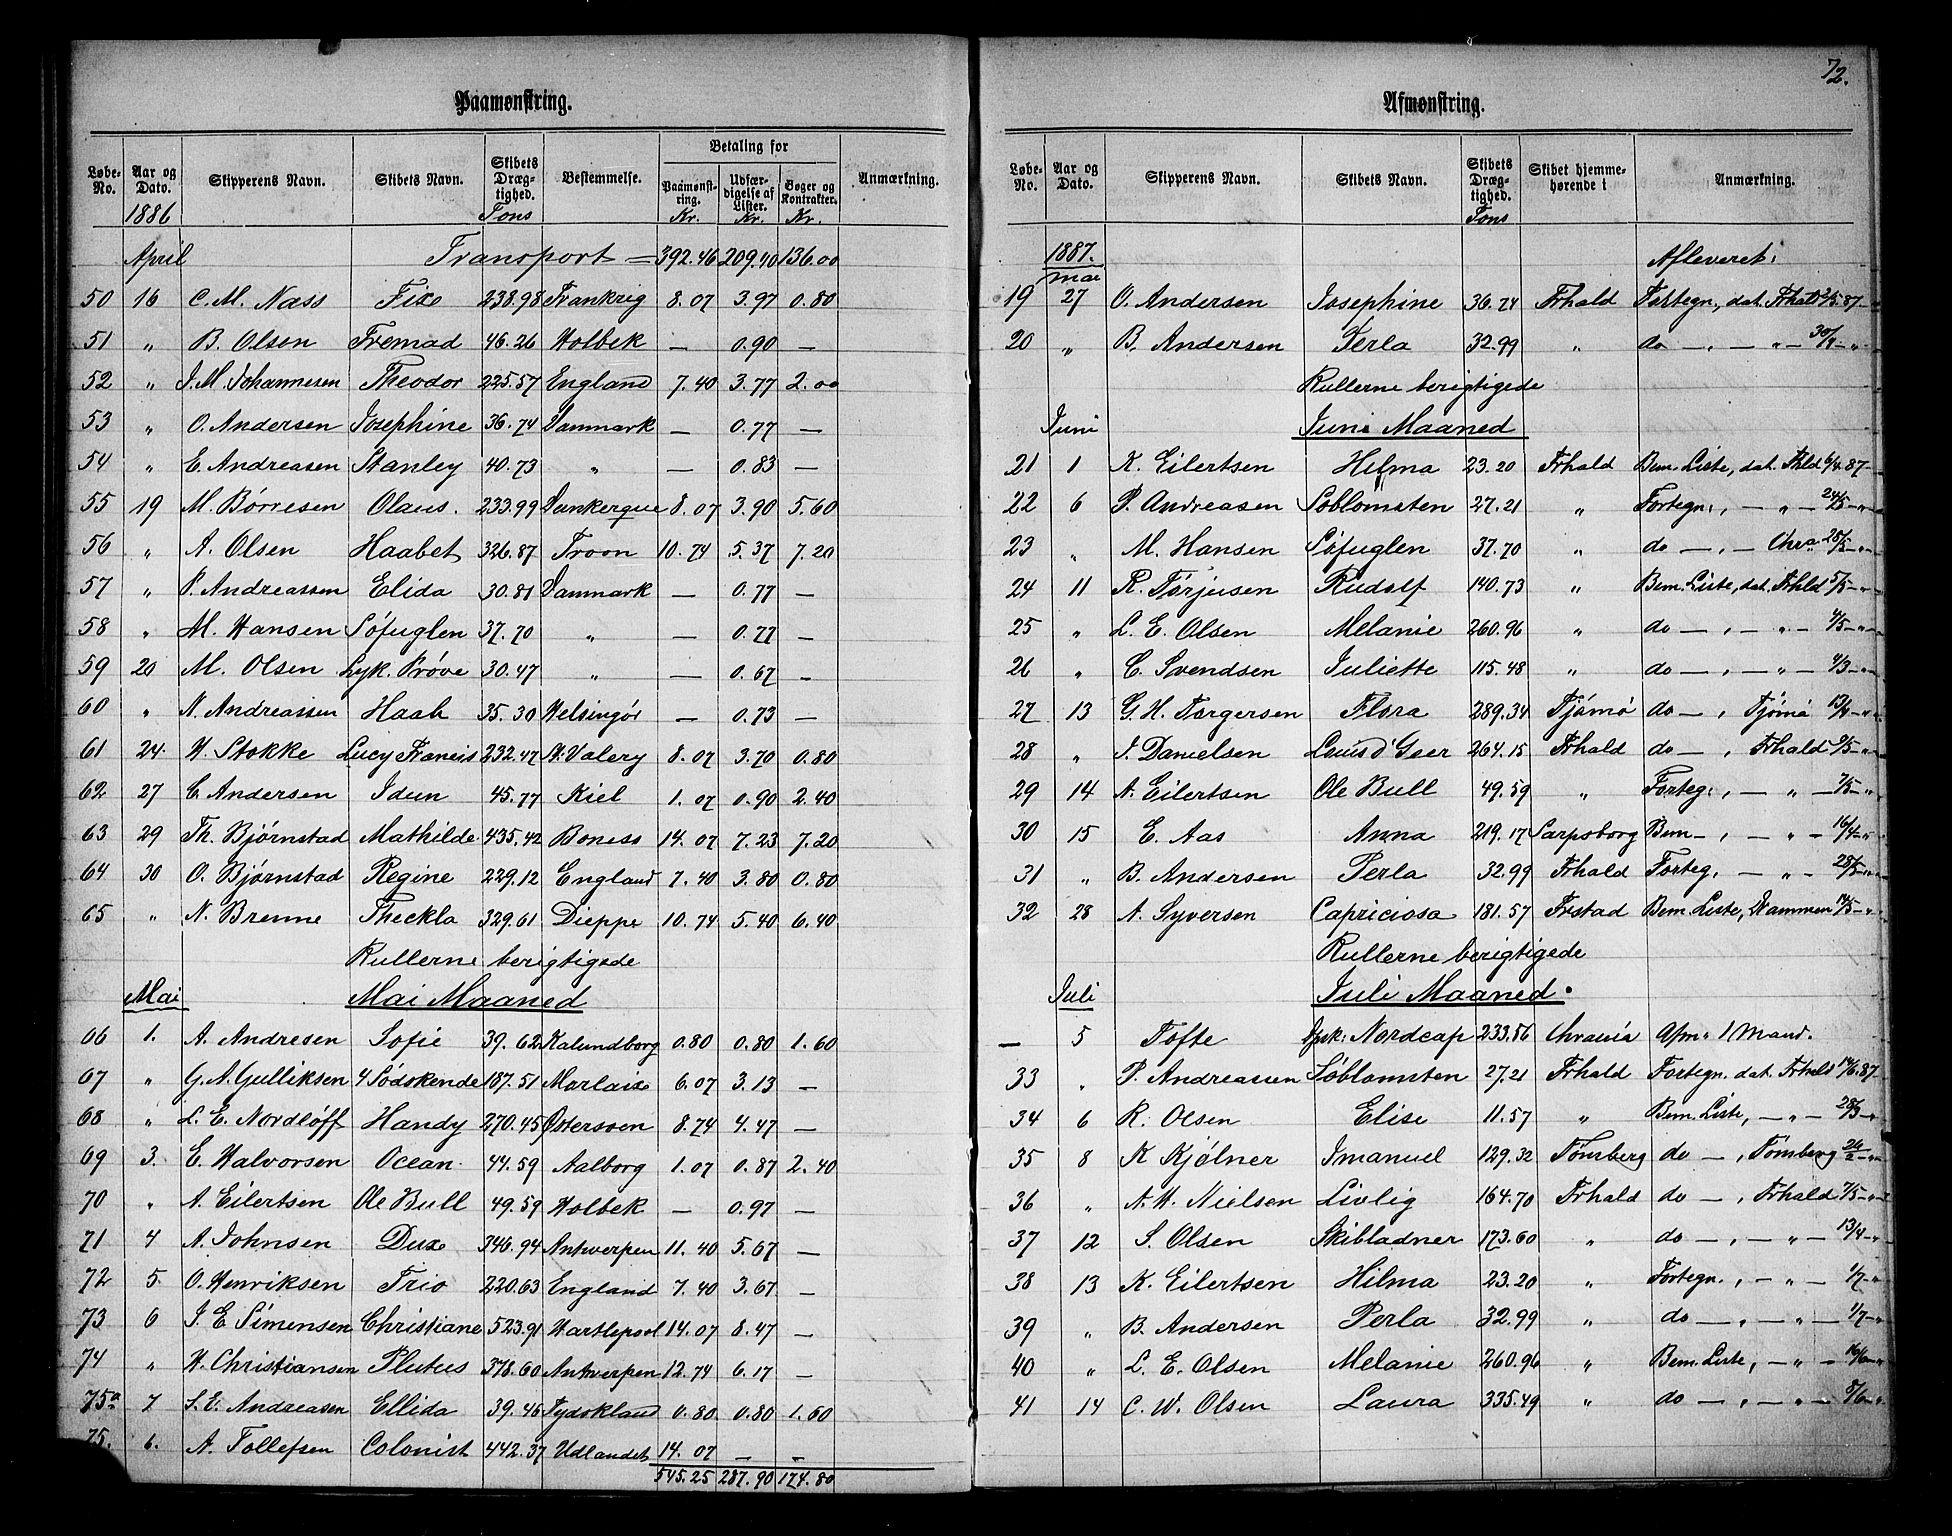 Paamønstring.
Løbe-No. | Aar og Dato. | Skipperens Navn. | Skibets Navn. | Skibets Dræg-tighed. | Bestemmelse. | Betaling for | Paamønst-ring. | Udfær-digelse af Lister. | Bøger og Kontrakter. | Anmærkning.
1886 Tons Kr. Kr. Kr.
April Transport = 392.46 209.40 136.00
50 16 C. M. Nass Fixo 238.98 Frankrig 8.07 3.97 0.80
51 " B. Olsen Fremad 46.26 Holbek — 0.90 —
52 " J. M. Johannesen Theodor 225.57 England 7.40 3.77 2.00
53 " O. Andersen Josephine 36.74 Danmark — 0.77 —
54 " E. Andreasen Stanley 40.73 " — 0.83 —
55 19 M. Børresen Olaus. 233.99 Dunkerque 8.07 3.90 5.60
56 " A. Olsen Haabet 326.87 Troon 10.74 5.37 7.20
57 " P. Andreassen Elida 30.81 Danmark — 0.77 —
58 " M. Hansen Søfuglen 37.70 " — 0.77 —
59 20 M. Olsen Lyk. Prøve 30.47 " — 0.67 —
60 " N. Andreassen Haab 35.30 Helsingør — 0.73 —
61 24. H. Stokke Lucy Francis 232.47 St. Valery 8.07 3.70 0.80
62 27 C. Andersen Idun 45.77 Kiel 1.07 0.90 2.40
63 29 Th. Bjørnstad Mathilde 435.42 Boness 14.07 7.23 7.20
64 30 O. Bjørnstad Regine 229.12 England 7.40 3.80 0.80
65 " N. Brenne Theckla 329.61 Dieppe 10.74 5.40 6.40
Rullerne berigtigede
Mai Mai Maaned
66 1. A. Andresen Sofie 39.62 Kalundborg 0.80 0.80 1.60
67 " G. A. Gulliksen 4 Sødskende 187.51 Morlaix 6.07 3.13 —
68 " L. E. Nordløff Handy 270.45 Østersøen 8.74 4.47 —
69 3. E. Halvorsen Ocean. 44.59 Aalborg 1.07 0.87 2.40
70 " A. Eilertsen Ole Bull 49.59 Holbek — 0.97 —
71 4 A. Johnsen Duxe 346.94 Antwerpen 11.40 5.67 —
72 5. O. Henriksen Trio 220.63 England 7.40 3.67 —
73 6 J. E. Simensen Christiane 523.91 Hartlepool 14.07 8.47 —
74 " H. Christiansen Plutus 378.60 Antwerpen 12.74 6.17 —
75a 7 S. E. Andreasen Ellida 39.46 Tydskland 0.80 0.80 1.60
75. 6. A. Tollefsen Colonist 442.37 Udlandet 14.07 — —
545.25 287.90 174.80
72.
Afmønstring.
Løbe-No. | Aar og Dato. | Skipperens Navn. | Skibets Navn. | Skibets Dræg-tighed. | Skibet hjemme-hørende i | Anmærkning.
Tons
1887. Afleveret:
mai
19 27 O. Andersen Josephine 36.74 Frhald Fortegn, dat. Frhald 2/5.87
20 " B. Andersen Perla 32.99 " do — , — " — 30/4 — "
Rullerne berigtigede
Juni Juni Maaned
21 1 K. Eilertsen Hilma 23.20 Frhald Bem. Liste, dat. Fhld 6/4.87
22 6 P. Andreasen Søblomsten 27.21 " Fortegn., — " — 24/5 — "
23 " M. Hansen Søfuglen 37.70 " do — , — Chra 25/5 — "
24 11 R. Tørjusen Rudolf 140.73 " Bem. Liste, dat. Frhld 5/5 — "
25 " L. E. Olsen Melanie 260.96 " do — , — " — 4/5 — "
26 " C. Svendsen Juliette 115.48 " do — , — " — 4/3 — "
27 13 G. H. Torgersen Flora 289.34 Tjømø do — , Tjømø 13/4 — "
28 " J. Danielsen Louis d' Geer 264.15 Frhald do — , Frhald 9/5 — "
29 14 A. Eilertsen Ole Bull 49.59 " Forteg., — " — 7/5 — "
30 15 E. Aas Anna 219.17 Sarpsborg Bem — , — " — 16/4 — "
31 " B. Andersen Perla 32.99 Frhald Forteg. — " — 28/5 — "
32 28 A. Syversen Capriciosa 181.57 Frstad Bem. Liste, Drammen 14/5 — "
Rullerne berigtigede
Juli Juli Maaned.
— 5 Tofte dpsk. Nordcap 233.56 Chrania Afm. 1 Mand.
33 " P. Andreassen Søblomsten 27.21 Frhald Fortegn. dat. Frhald 14/6.87
34 6 R. Olsen Elise 11.57 " Bem. Liste, — " — 28/3 — "
35 8 K Kjølner Imanuel 129.32 Tønsberg do — , Tønsberg 26/2 — "
36 " A. H. Nielsen Livlig 164.70 Frhald do — , Frhald 7/5 — "
37 12 S. Olsen Skibladner 173.60 " do — , — " — 13/4 — "
38 13 K. Eilertsen Hilma 23.20 " Fortegn., — " — 1/7 — "
39 " B. Andersen Perla 32.99 " do — , — " — 1/7 — "
40 " L. E. Olsen Melanie 260.96 " Bem. Liste, — " — 16/6 — "
41 14 C. W. Olsen Laura 335.49 " do — , — " — 5/6 — "